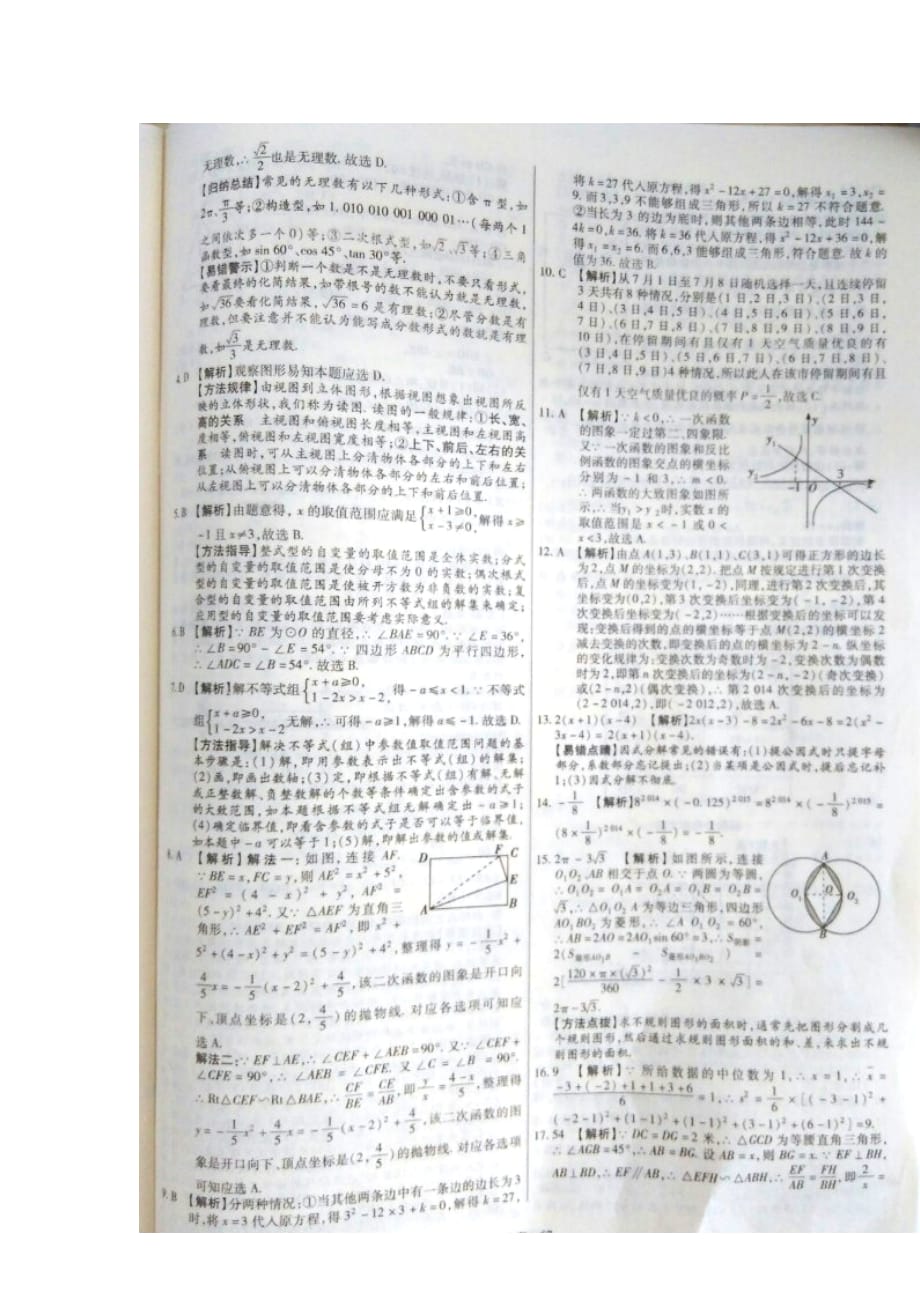 无理数,∴ √2/2 也是无理数. 故选 D.
【归纳总结】常见的无理数有以下几种形式:①含 π 型,如
2π、π/3等;②构造型,如 1. 010 010 001 000 01…(每两个 1
之间依次多一个 0)等;③二次根式型,如√2、√3等;④三角
函数型,如 sin 60°、cos 45°、tan 30°等.
【易错警示】①判断一个数是不是无理数时,不要只看形式,
要看最终的化简结果,如带根号的数不能认为就是无理数,
如√36要看化简结果,√36=6 是有理数;②尽管分数是有
理数,但要注意并不能认为能写成分数形式的数就是有理
数,如√3/3是无理数.
4. D 【解析】观察图形易知本题应选 D.
【方法规律】由视图到立体图形,根据视图想象出视图所反
映的立体形状,我们称为读图. 读图的一般规律:①长、宽、
高的关系 主视图和俯视图长度相等,主视图和左视图高
度相等,俯视图和左视图宽度相等;②上下、前后、左右的关
系 读图时,可从主视图上分清物体各部分的上下和左右
位置;从俯视图上可以分清物体各部分的左右和前后位置;
从左视图上可以分清物体各部分的上下和前后位置.
5. B 【解析】由题意得, x 的取值范围应满足{x+1≥0, x-3≠0, 解得 x≥
-1且 x≠3,故选 B.
【方法指导】整式型的自变量的取值范围是全体实数;分式
型的自变量的取值范围是使分母不为 0 的实数;偶次根式
型的自变量的取值范围是使被开方数为非负数的实数;复
合型的自变量的取值范围由所列不等式组的解集来确定;
应用型的自变量的取值范围要考虑实际意义.
6. B 【解析】∵ BE 为⊙O 的直径,∴ ∠BAE=90°. ∵ ∠E=36°,
∴ ∠B=90°-∠E=54°. ∵ 四边形 ABCD 为平行四边形,
∴ ∠ADC=∠B=54°. 故选 B.
7. D 【解析】解不等式组{x+a≥0, 1-2x>x-2, 得-a≤x<1. ∵ 不等式
组{x+a≥0, 1-2x>x-2 无解,∴ 可得-a≥1,解得 a≤-1. 故选 D.
【方法指导】解决不等式(组)中参数值取值范围问题的基
本步骤是:(1)解,即用参数表示出不等式(组)的解集;
(2)画,即画出数轴;(3)定,即根据不等式(组)有解、无解
或正整数解、负整数解的个数等条件确定出含参数的式子
的大致范围,如本题根据不等式组无解确定出 -a≥1;
(4)确定临界值,即看含参数的式子是否可以等于临界值,
如本题中-a 可以等于 1;(5)解,即解出参数的值或解集.
8. A 【解析】解法一:如图,连接 AF.
∵ BE=x,FC=y,则 AE²=x²+5²,
EF²=(4-x)²+y², AF²=
(5-y)²+4². 又∵ △AEF 为直角三
角形,∴ AE²+EF²=AF²,即 x²+
5²+(4-x)²+y²=(5-y)²+4²,整理得 y=-1/5x²+
4/5x=-1/5(x-2)²+4/5,该二次函数的图象是开口向
下、顶点坐标是(2,4/5)的抛物线. 对应各选项可知应
选 A.
解法二:∵ EF⊥AE,∴ ∠CEF+∠AEB=90°. 又∵ ∠CEF+
∠CFE=90°,∴ ∠AEB=∠CFE. 又∠C=∠B=90°.
∴ Rt△CEF∽Rt△BAE,∴ CF/BE=CE/AB,即 y/x=(4-x)/5,整理得
y=-1/5x²+4/5x=-1/5(x-2)²+4/5,该二次函数的图
象是开口向下、顶点坐标是(2,4/5)的抛物线. 对应各选项
可知应选 A.
9. B 【解析】分两种情况:①当其他两条边中有一条边的边长为 3
时,将 x=3 代人原方程,得 3²-12×3+k=0,解得 k=27,
D
F
C
E
A
B
将 k=27 代人原方程,得 x²-12x+27=0,解得 x₁=3,x₂=
9. 而3,3,9 不能够组成三角形,所以 k=27 不符合题意.
②当长为 3 的边为底时,则其他两条边相等,此时 144-
4k=0,k=36. 将 k=36 代人原方程,得 x²-12x+36=0,解
得 x₁=x₂=6. 而 6,6,3 能够组成三角形,符合题意. 故 k 的
值为 36. 故选 B.
10. C 【解析】从 7 月 1 日至 7 月 8 日随机选择一天,且连续停留
3 天共有 8 种情况,分别是(1 日,2 日,3 日)、(2 日,3 日,
4 日)、(3 日,4 日,5 日)、(4 日,5 日,6 日)、(5 日,6 日,
7 日)、(6 日,7 日,8 日)、(7 日,8 日,9 日)、(8 日,9 日,
10 日),在停留期间有且仅有 1 天空气质量优良的有
(3 日,4 日,5 日)、(5 日,6 日,7 日)、(6 日,7 日,8 日)、
(7 日,8 日,9 日)4 种情况,所以此人在该市停留期间有且
仅有 1 天空气质量优良的概率 P=1/2,故选 C.
11. A 【解析】∵ k<0,∴ 一次函数
的图象一定过第二、四象限.
又∵ 一次函数的图象和反比
例函数的图象交点的横坐标
分别为 -1 和 3,∴ m<0.
∴ 两函数的大致图象如图所
示,∴ 当 y₁>y₂ 时,实数 x 的
取值范围是 x<-1 或 0<
x<3,故选 A.
y
y₁
y₂
-1
O
3
x
12. A 【解析】由点 A(1,3)、B(1,1)、C(3,1)可得正方形的边长
为 2,点 M 的坐标为(2,2). 把点 M 按规定进行第 1 次变换
后,点 M 的坐标变为(1,-2),同理,进行第 2 次变换后,其
坐标变为(0,2),第 3 次变换后坐标变为(-1,-2),第 4
次变换后坐标变为(-2,2)……根据变换后的坐标可以发
现:变换后得到的点的横坐标等于点 M(2,2)的横坐标 2
减去变换的次数,即变换后的点的横坐标为 2-n. 纵坐标
的变化规律为:变换次数为奇数时为-2,变换次数为偶数
时为 2,即第 n 次变换后的坐标为(2-n,-2)(奇次变换)
或(2-n,2)(偶次变换),∴ 第 2 014 次变换后的坐标为
(2-2 014,2),即(-2 012,2),故选 A.
13. 2(x+1)(x-4) 【解析】2x(x-3)-8=2x²-6x-8=2(x²-
3x-4)=2(x+1)(x-4).
【易错点睛】因式分解常见的错误有:(1)提公因式时只提字母
部分,系数部分忘记提出;(2)当某项是公因式时,提后忘记补
1;(3)因式分解不彻底.
14. -1/8 【解析】8²⁰¹⁴×(-0.125)²⁰¹⁵=8²⁰¹⁴×(-1/8)²⁰¹⁵=
(8×1/8)²⁰¹⁴×(-1/8)=-1/8.
15. 2π-3√3 【解析】如图所示,连接
O₁O₂、AB 相交于点 O. ∵ 两圆为等圆,
∴ O₁O₂=O₁A=O₂A=O₁B=O₂B=
√3,∴ △O₁O₂A 为等边三角形,四边形
AO₁BO₂ 为菱形,∴ ∠A O₁O₂=60°,
∴ AB=2AO=2AO₁sin 60°=3,∴ S阴影=
2(S AO₁B - S菱形AO₁BO₂)=
2[120×π×(√3)²/360-1/2×3×√3]=
2π-3√3.
A
O₁
O
O₂
B
【方法点拨】求不规则图形的面积时,通常先把图形分割成几
个规则图形,然后通过求规则图形面积的和、差,来求出不规
则图形的面积.
16. 9 【解析】∵ 所给数据的中位数为 1,∴ x=1,∴ x̄=
(-3+(-2)+1+1+3+6)/6=1,∴ s²=1/6×[(-3-1)²+
(-2-1)²+(1-1)²+(1-1)²+(3-1)²+(6-1)²]=9.
17. 54 【解析】∵ DC=DG=2 米,∴ △GCD 为等腰直角三角形,
∴ ∠AGB=45°,∴ AB=BG. 设 AB=x,则 BG=x. ∵ EF⊥BH,
AB⊥BD,∴ EF∥AB,∴ △EFH∽△ABH,∴ EF/AB=FH/BH,即 2/x=